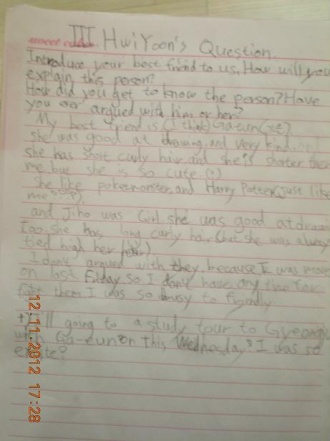 III HwiYoon's Question
Introduce your best friend to us. How will you
explain this person?
How did you get to know the person? Have
you ever argued with him or her?
My best friend is (I think) Gaeun
She was good at drawing, and very kind.
she has short curly hair, and she is shorter than
me but she is so cute.
She like pokemonster, and Harry Potter, just like
me
and Jiho was Girl she was good at draw
too she has long curly hair (but she was always
tied high her hair)
I don't argued with they because I was
on last Friday so I don't have any time for
them I was so busy to
I'll going to a study tour to
with Ga-eun on this I was so
excite?
12.11.2012 17:28